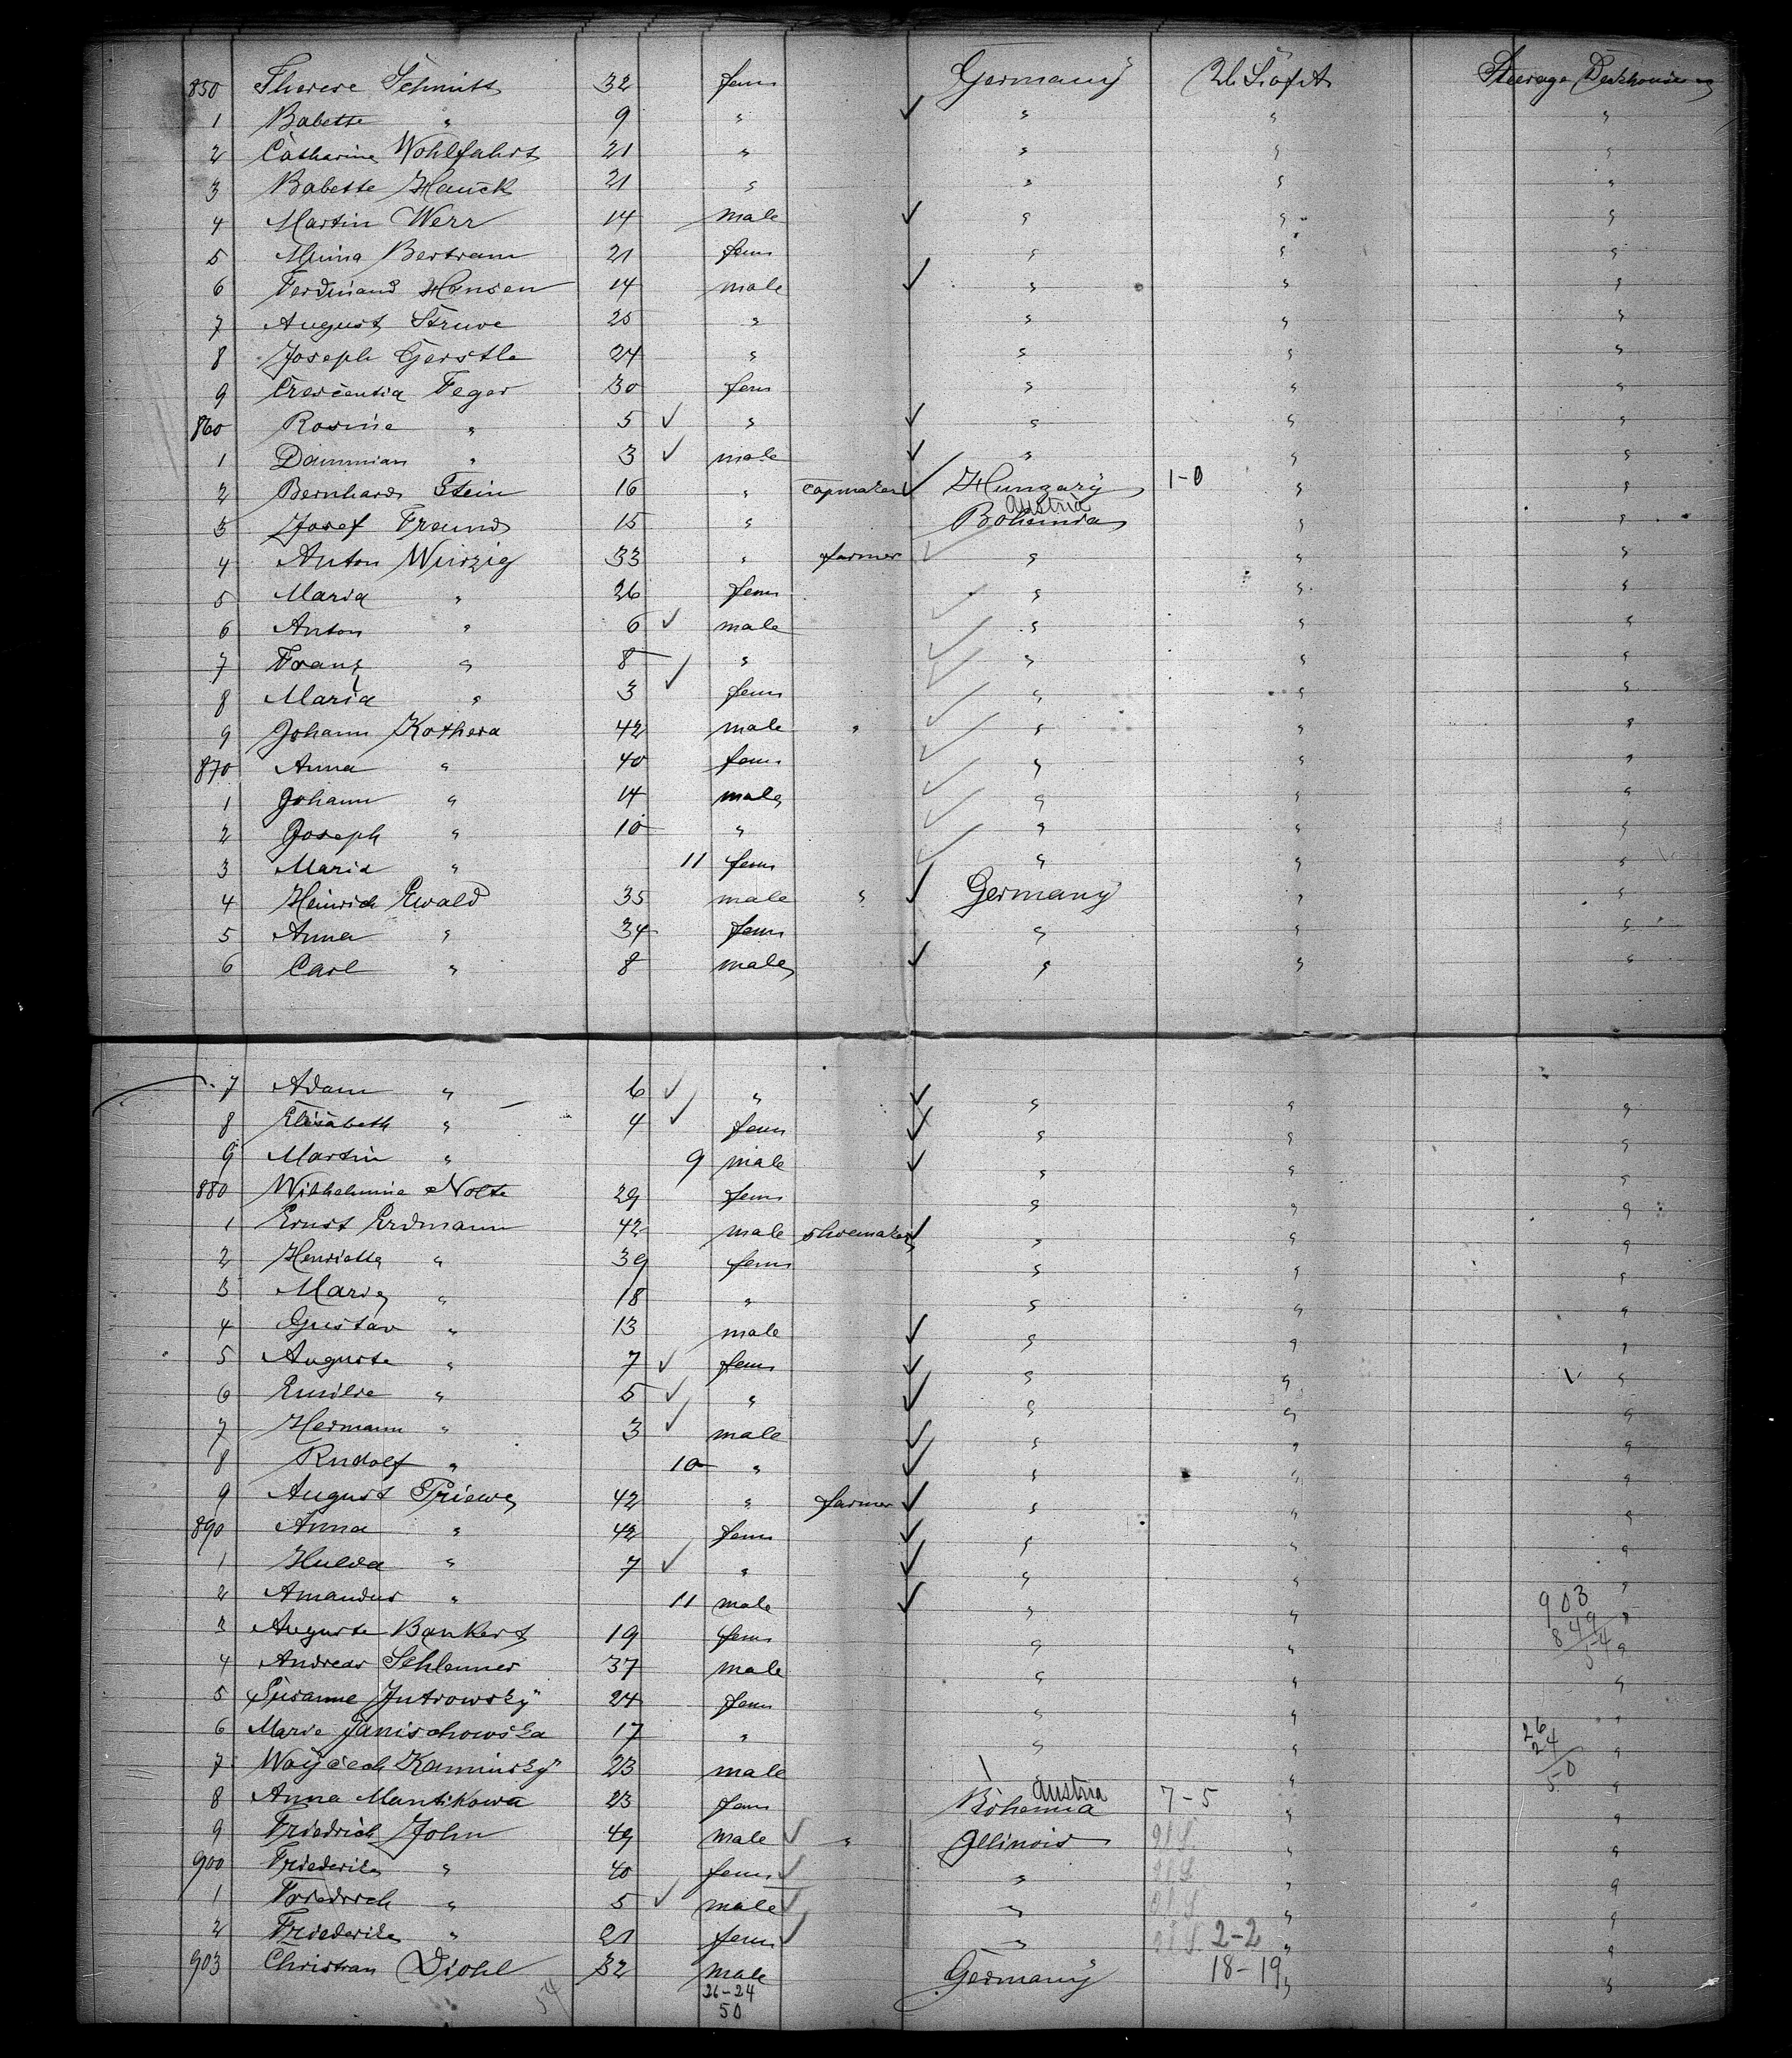 850 Therese Schmitt 32 fem Germany U. States Steerage Deckhouse
1 Babette " 9 " " " "
2 Catharina Wohlfahrt 21 " " " "
3 Babette Hauck 21 " " " "
4 Martin Werr 14 male " " "
5 Minna Bertram 21 fem " " "
6 Ferdinand Hansen 14 male " " "
7 August Struve 25 " " " "
8 Joseph Gerstle 24 " " " "
9 Crescentia Feger 30 fem " " "
860 Rosine " 5 ✓ " " " "
1 Dammian " 3 ✓ male " " "
2 Bernhard Stein 16 " capmaker Hungary 1-0 " "
Austria
3 Josef Freund 15 " Bohemia " "
4 Anton Wurzig 33 " farmer " " "
5 Maria " 26 fem " " "
6 Anton " 6 ✓ male " " "
7 Franz " 8 ✓ " " " "
8 Maria " 3 fem " " "
9 Johann Kothera 42 male " " " "
870 Anna " 40 fem " " "
1 Johann " 14 male " " "
2 Joseph " 10 " " " "
3 Maria " 11 fem " " "
4 Heinrich Ewald 35 male " Germany " "
5 Anna " 34 fem " " "
6 Carl " 8 male " " "
7 Adam " 6 ✓ " " " "
8 Elisabeth " 4 ✓ fem " " "
9 Martin " 9 male " " "
880 Wilhelmine Nolte 29 fem " " "
1 Ernst Erdmann 42 male shoemaker " " "
2 Henriette " 39 fem " " "
3 Marie " 18 " " " "
4 Gustav " 13 male " " "
5 Auguste " 7 ✓ fem " " "
6 Emilie " 5 ✓ " " " "
7 Hermann " 3 ✓ male " " "
8 Rudolf " 10 " " " "
9 August Priewe 42 " farmer " " "
890 Anna " 42 fem " " "
1 Hulda " 7 ✓ " " " "
2 Amandus " 11 male " " 903 "
3 Auguste Bankert 19 fem " " 849 "
4 Andreas Schlemmer 37 male " " 54 "
5 Susanne Jutrowsky 24 fem " " "
6 Marie Janischowska 17 " " " 26 "
7 Woyciech Kaminsky 23 male " " 24 "
Austria 50
8 Anna Mantikowa 23 fem Bohemia 7-5 " "
9 Friedrich John 49 male ✓ " Illinois U.S. " "
900 Friederike " 40 fem ✓ " U.S. " "
1 Friedrich " 5 ✓ male ✓ " U.S. " "
2 Friederike " 21 fem ✓ " U.S. 2-2 " "
903 Christian Diohl 32 male Germany 18-19 " "
54 26-24
50